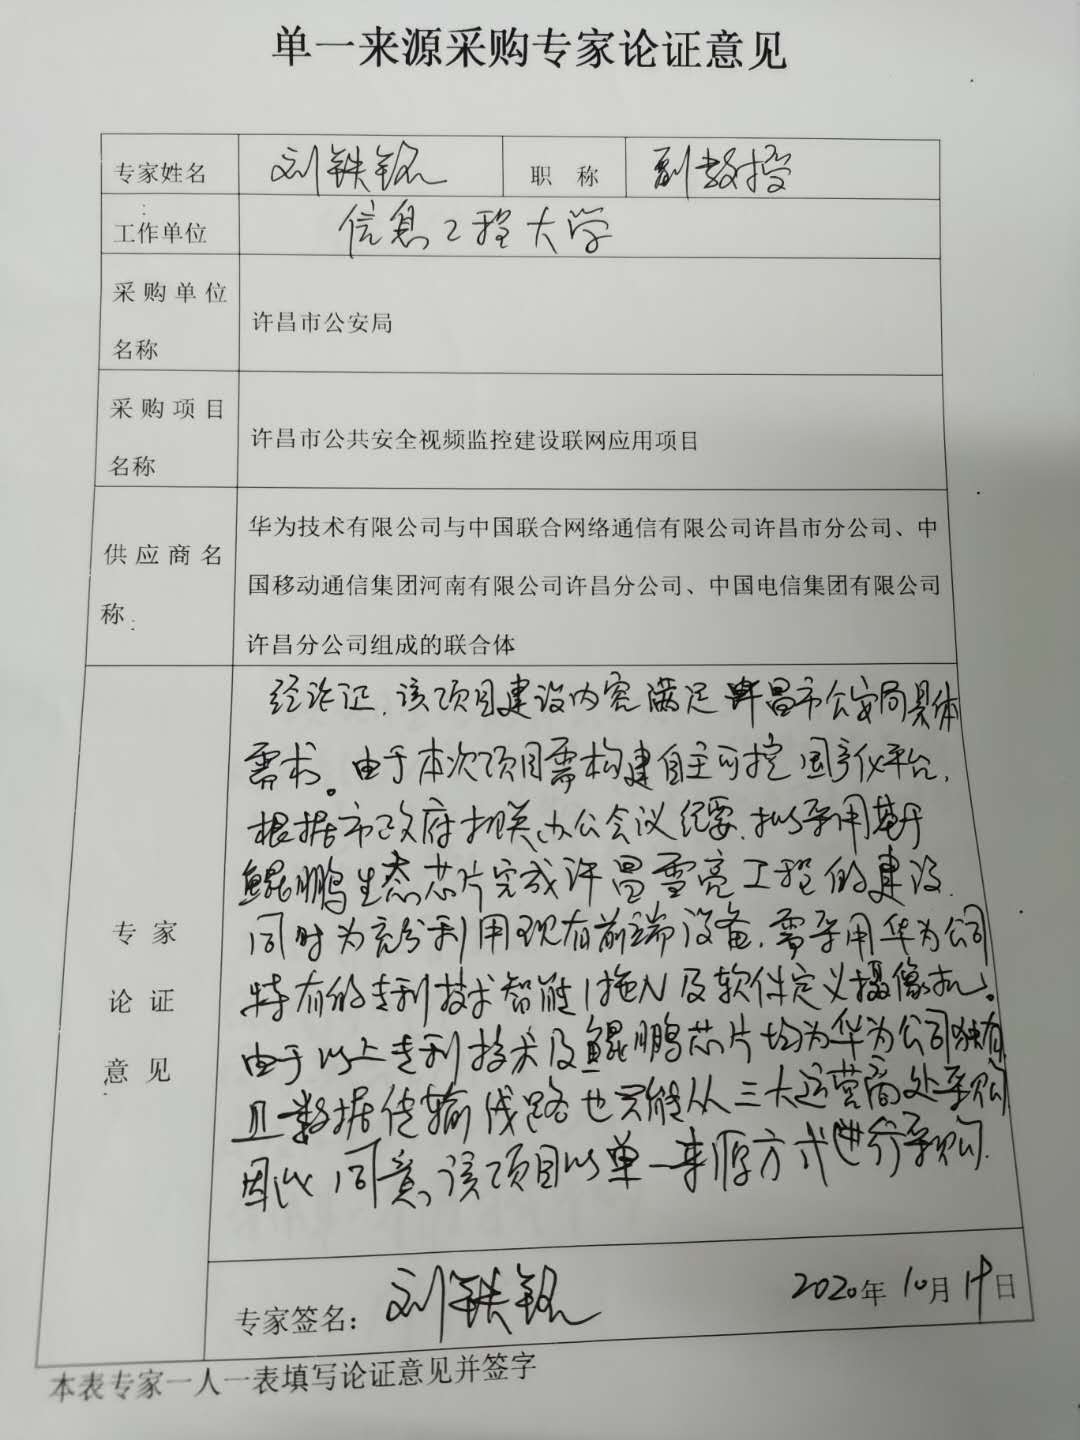 单一来源采购专家论证意见
专家姓名 刘铁铭 职称 副教授
工作单位 信息工程大学
采购单位
名称
许昌市公安局
采购项目
名称
许昌市公共安全视频监控建设联网应用项目
供应商名
称:
华为技术有限公司与中国联合网络通信有限公司许昌市分公司、中
国移动通信集团河南有限公司许昌分公司、中国电信集团有限公司
许昌分公司组成的联合体
专家
论证
意见
经论证,该项目建设内容满足许昌市公安局具体
需求。由于本次项目需构建自主可控国产化平台,
根据市政府相关办公会议纪要,拟采用基于
鲲鹏生态芯片完成许昌雪亮工程的建设,
同时为充分利用现有前端设备,需采用华为公司
特有的专利技术智能1拖N及软件定义摄像机。
由于以上专利技术及鲲鹏芯片均为华为公司独有
且数据传输线路也只能从三大运营商处采购
因此同意该项目以单一来源方式进行采购.
专家签名: 刘铁铭 2020年10月 日
本表专家一人一表填写论证意见并签字